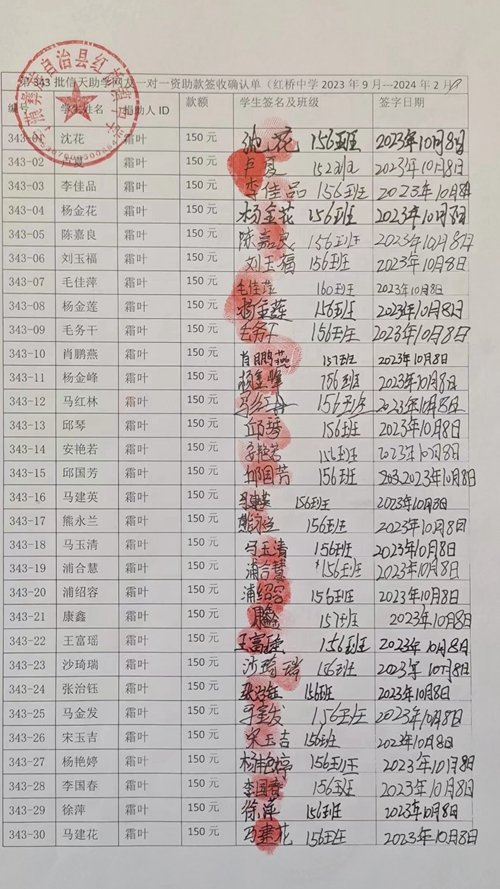 第 343 批信天助学网友一对一资助款签收确认单（红桥中学 2023 年 9 月---2024 年 2 月）
编号 学生姓名 捐助人 ID 款额 学生签名及班级 签字日期
343-01 沈花 霜叶 150 元 沈花 156班 2023年10月8日
343-02 卢夏 霜叶 150 元 卢夏 152班 2023年10月8日
343-03 李佳品 霜叶 150 元 李佳品 156班 2023年10月8日
343-04 杨金花 霜叶 150 元 杨金花 156班 2023年10月8日
343-05 陈嘉良 霜叶 150 元 陈嘉良 156班 2023年10月8日
343-06 刘玉福 霜叶 150 元 刘玉福 156班 2023年10月8日
343-07 毛佳萍 霜叶 150 元 毛佳萍 160班 2023年10月8日
343-08 杨金莲 霜叶 150 元 杨金莲 156班 2023年10月8日
343-09 毛务干 霜叶 150 元 毛务干 156班 2023年10月8日
343-10 肖鹏燕 霜叶 150 元 肖鹏燕 157班 2023年10月8日
343-11 杨金峰 霜叶 150 元 杨金峰 156班 2023年10月8日
343-12 马红林 霜叶 150 元 马红林 156班 2023年10月8日
343-13 邱琴 霜叶 150 元 邱琴 156班 2023年10月8日
343-14 安艳若 霜叶 150 元 安艳若 156班 2023年10月8日
343-15 邱国芳 霜叶 150 元 邱国芳 156班 2023年10月8日
343-16 马建英 霜叶 150 元 马建英 156班 2023年10月8日
343-17 熊永兰 霜叶 150 元 熊永兰 156班 2023年10月8日
343-18 马玉清 霜叶 150 元 马玉清 156班 2023年10月8日
343-19 浦合慧 霜叶 150 元 浦合慧 156班 2023年10月8日
343-20 浦绍容 霜叶 150 元 浦绍容 156班 2023年10月8日
343-21 康鑫 霜叶 150 元 康鑫 157班 2023年10月8日
343-22 王富瑶 霜叶 150 元 王富瑶 156班 2023年10月8日
343-23 沙琦瑞 霜叶 150 元 沙琦瑞 156班 2023年10月8日
343-24 张治钰 霜叶 150 元 张治钰 156班 2023年10月8日
343-25 马金发 霜叶 150 元 马金发 156班 2023年10月8日
343-26 宋玉吉 霜叶 150 元 宋玉吉 156班 2023年10月8日
343-27 杨艳婷 霜叶 150 元 杨艳婷 156班 2023年10月8日
343-28 李国春 霜叶 150 元 李国春 156班 2023年10月8日
343-29 徐萍 霜叶 150 元 徐萍 156班 2023年10月8日
343-30 马建花 霜叶 150 元 马建花 156班 2023年10月8日